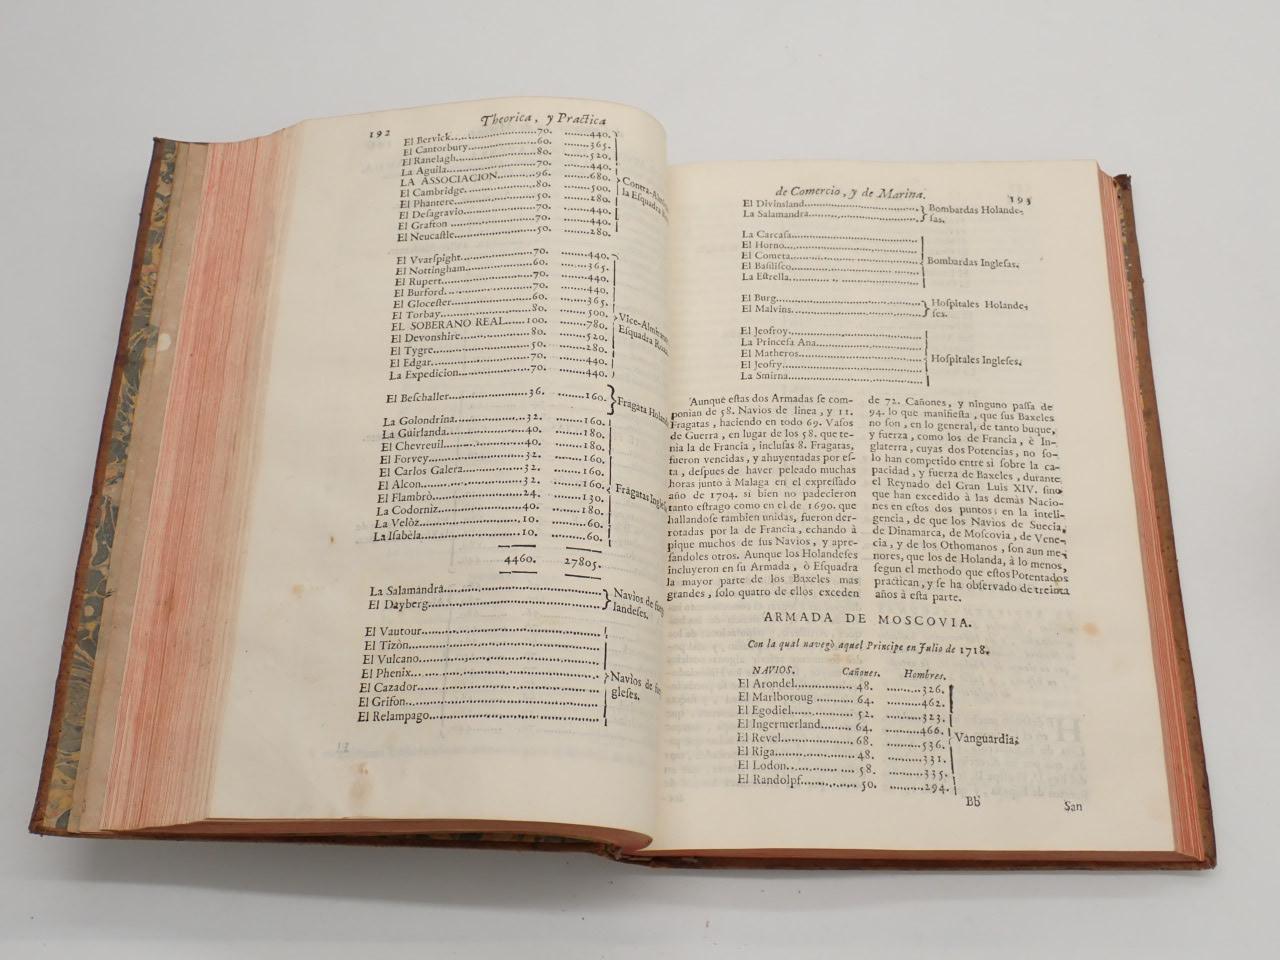 192
Theorica, y Practica
El Bervick............70. ........440.
El Cantorbury............60. ........365.
El Ranelagh............80. ........520.
La Aguila............70. ........440.
LA ASSOCIACION............96. ........680.
El Cambridge............80. ........500.
El Phantere............50. ........280.
El Desagravio............70. ........440.
El Grafton............70. ........440.
El Neucastle............50. ........280.
Contra-
la Esquadra
El Vvarspight............70. ........440.
El Nottingham............60. ........365.
El Rupert............70. ........440.
El Burford............70. ........440.
El Glocester............60. ........365.
El Torbay............80. ........500.
EL SOBERANO REAL......100. ........780.
El Devonshire............80. ........520.
El Tygre............50. ........280.
El Edgar............70. ........440.
La Expedicion............70. ........440.
Vice-
Esquadra
El Beschaller............36. ........160.
Fragata
La Golondrina............32. ........160.
La Guirlanda............40. ........180.
El Chevreuil............40. ........180.
El Forvey............32. ........160.
El Carlos Galera............32. ........160.
El Alcon............32. ........160.
El Flambrò............24. ........130.
La Codorniz............40. ........180.
La Velòz............10. ........60.
La Isabèla............10. ........60.
Fragatas
4460. 27805.
La Salamandra............
El Dayberg............
Navios de
landeses.
El Vautour............
El Tizòn............
El Vulcano............
El Phenix............
El Cazador............
El Grifon............
El Relampago............
Navios de
gleses.
de Comercio, y de Marina.
193
El Divinsland............
La Salamandra............
Bombardas Holande-
sas.
La Carcasa............
El Horno............
El Cometa............
El Basilisco............
La Estrella............
Bombardas Inglesas.
El Burg............
El Malvins............
Hospitales Holande-
ses.
El Jeofroy............
La Princesa Ana............
El Matheros............
El Jeofry............
La Smirna............
Hospitales Ingleses.
Aunque estas dos Armadas se com-
ponian de 58. Navios de linea, y 11.
Fragatas, haciendo en todo 69. Vasos
de Guerra, en lugar de los 58. que te-
nia la de Francia, inclusas 8. Fragatas,
fueron vencidas, y ahuyentadas por es-
ta, despues de haver peleado muchas
horas junto à Malaga en el expressado
año de 1704. si bien no padecieron
tanto estrago como en el de 1690. que
hallandose tambien unidas, fueron der-
rotadas por la de Francia, echando à
pique muchos de sus Navios, y apre-
sandoles otros. Aunque los Holandeses
incluyeron en su Armada, ò Esquadra
la mayor parte de los Baxeles mas
grandes, solo quatro de ellos exceden
de 72. Cañones, y ninguno passa de
94. lo que manifiesta, que sus Baxeles
no son, en lo general, de tanto buque,
y fuerza, como los de Francia, è In-
glaterra, cuyas dos Potencias, no so-
lo han competido entre si sobre la ca-
pacidad, y fuerza de Baxeles, durante
el Reynado del Gran Luis XIV. sino
que han excedido à las demàs Nacio-
nes en estos dos puntos; en la inteli-
gencia, de que los Navios de Suecia,
de Dinamarca, de Moscovia, de Vene-
cia, y de los Othomanos, son aun me-
nores, que los de Holanda, à lo menos,
segun el methodo que estos Potentados
practican, y se ha observado de treinta
años à esta parte.
ARMADA DE MOSCOVIA.
Con la qual navegò aquel Principe en Julio de 1718.
NAVIOS. Cañones. Hombres.
El Arondel............48. ........326.
El Marlboroug............64. ........462.
El Egodiel............52. ........323.
El Ingermerland............64. ........466.
El Revel............68. ........536.
El Riga............48. ........331.
El Lodon............58. ........335.
El Randolpf............50. ........294.
Vanguardia.
Bb
San